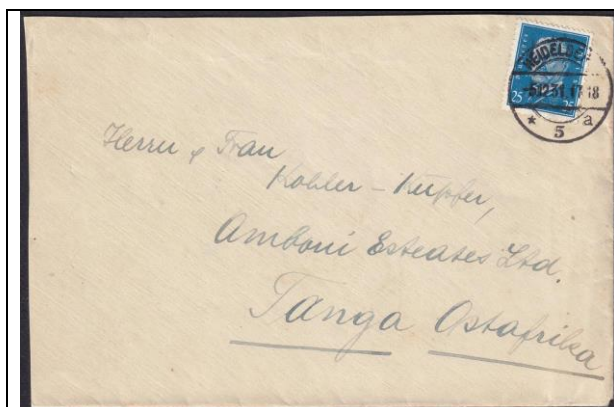 HEIDELBERG
-5.12.31.17-18
* 5 a
25 25
Herrn & Frau
Kohler-Kupfer,
Amboni Esteates Ltd.
Tanga Ostafrika